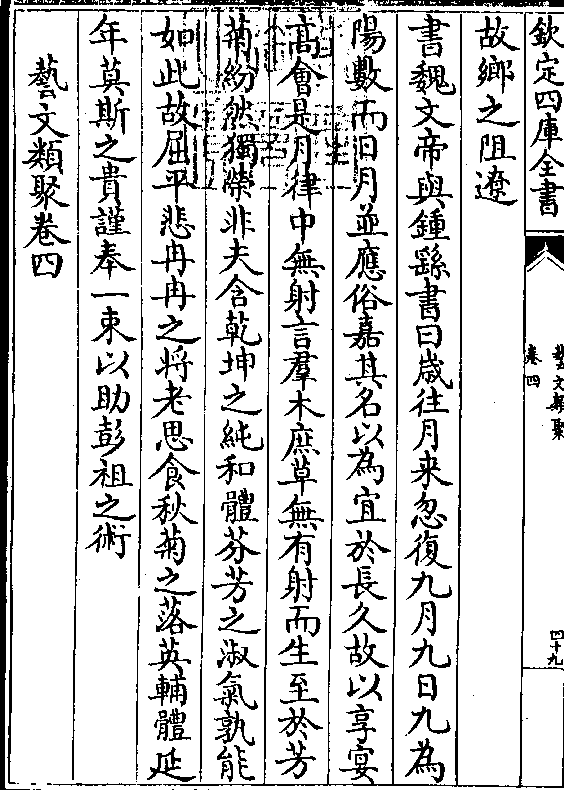 欽定四庫全書
藝文類聚
卷四
四十九
故鄉之阻遼
書魏文帝與鍾繇書曰歲往月来忽復九月九日九為
陽數而日月並應俗嘉其名以為宜於長久故以享宴
髙會是月律中無射言羣木庶草無有射而生至於芳
菊紛然獨榮非夫含乾坤之純和體芬芳之淑氣孰能
如此故屈平悲冉冉之将老思食秋菊之落英輔體延
年莫斯之貴謹奉一束以助彭祖之術
藝文類聚卷四